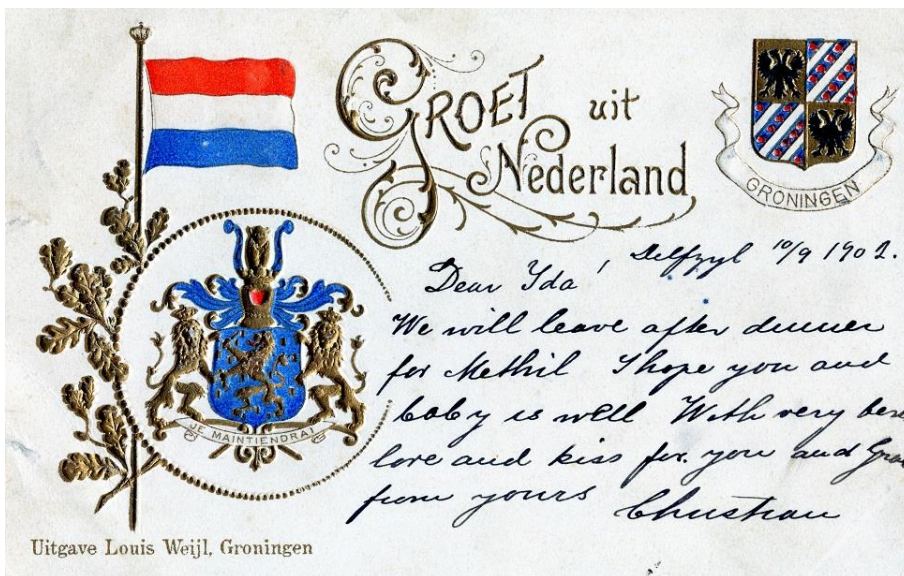 GROET uit
Nederland
GRONINGEN
Delfzyl 10/9 1902.
Dear Ida!
We will leave after dinner
for Methil I hope you and
baby is well With very
love and kiss for you and
from yours
Christian
JE MAINTIENDRAI
Uitgave Louis Weijl, Groningen